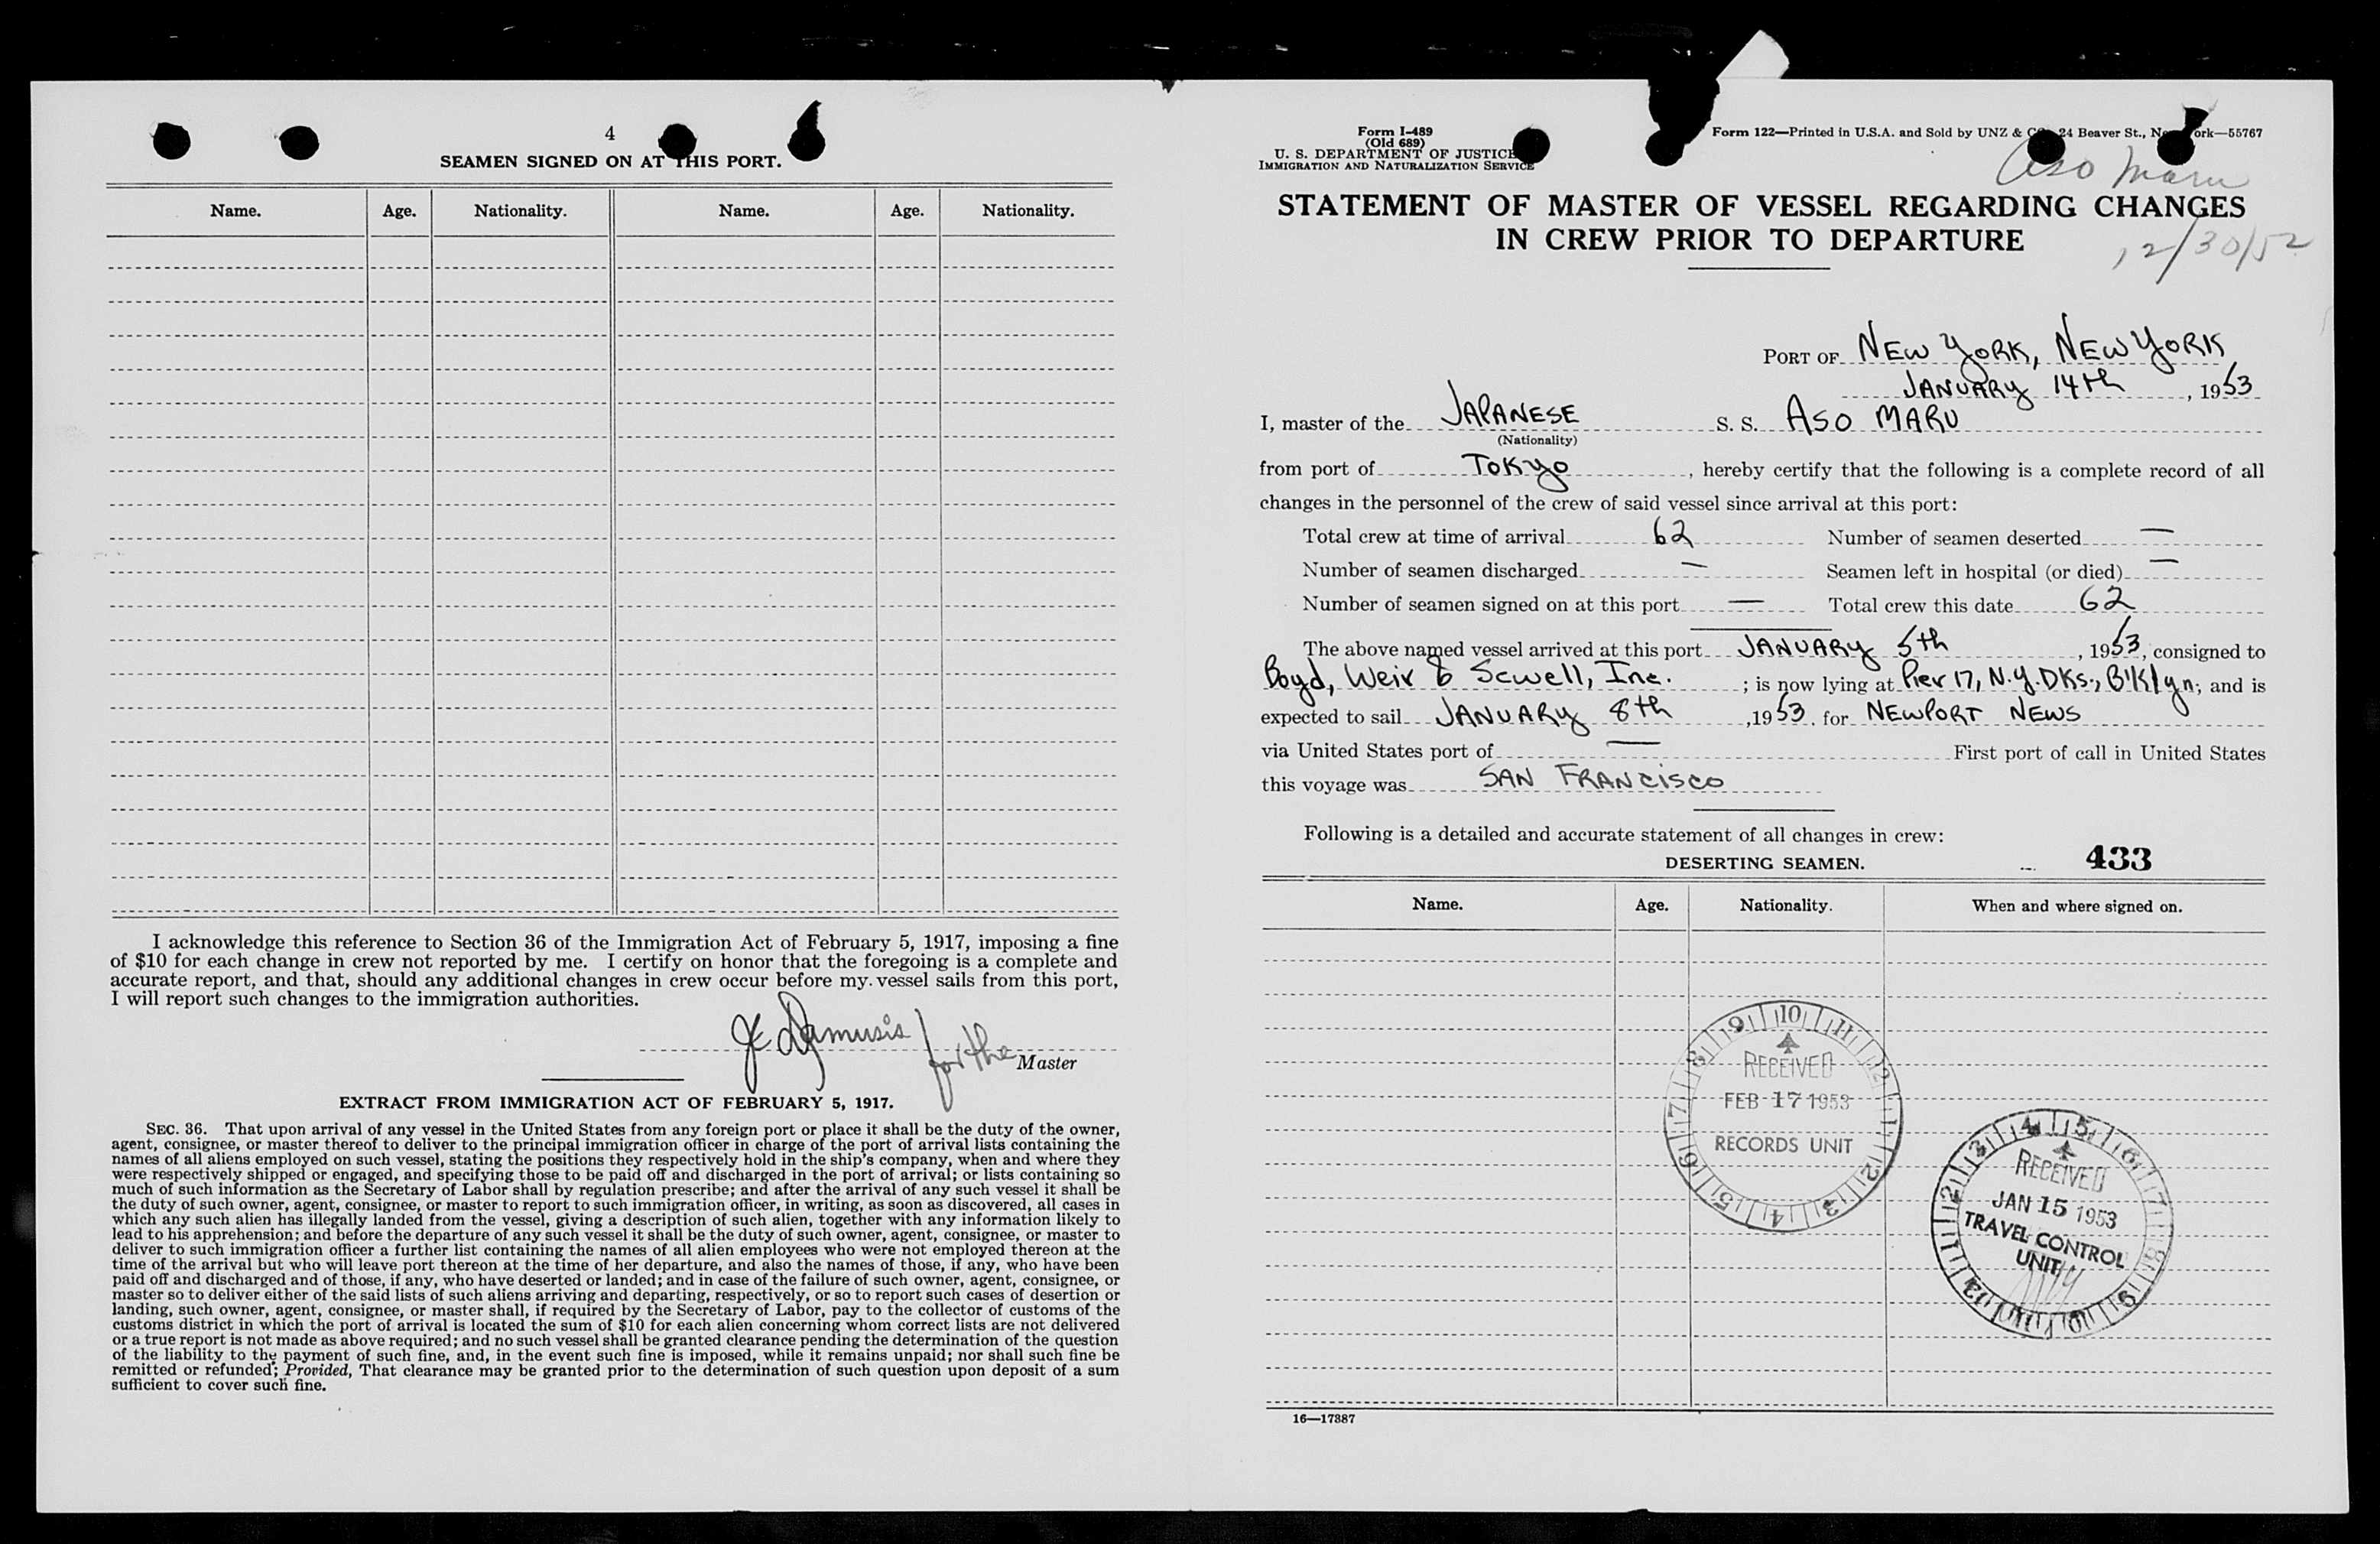 4
SEAMEN SIGNED ON AT THIS PORT.
Name. Age. Nationality. Name. Age. Nationality.
I acknowledge this reference to Section 36 of the Immigration Act of February 5, 1917, imposing a fine
of $10 for each change in crew not reported by me. I certify on honor that the foregoing is a complete and
accurate report, and that, should any additional changes in crew occur before my vessel sails from this port,
I will report such changes to the immigration authorities.
for the Master
EXTRACT FROM IMMIGRATION ACT OF FEBRUARY 5, 1917.
SEC. 36. That upon arrival of any vessel in the United States from any foreign port or place it shall be the duty of the owner,
agent, consignee, or master thereof to deliver to the principal immigration officer in charge of the port of arrival lists containing the
names of all aliens employed on such vessel, stating the positions they respectively hold in the ship's company, when and where they
were respectively shipped or engaged, and specifying those to be paid off and discharged in the port of arrival; or lists containing so
much of such information as the Secretary of Labor shall by regulation prescribe; and after the arrival of any such vessel it shall be
the duty of such owner, agent, consignee, or master to report to such immigration officer, in writing, as soon as discovered, all cases in
which any such alien has illegally landed from the vessel, giving a description of such alien, together with any information likely to
lead to his apprehension; and before the departure of any such vessel it shall be the duty of such owner, agent, consignee, or master to
deliver to such immigration officer a further list containing the names of all alien employees who were not employed thereon at the
time of the arrival but who will leave port thereon at the time of her departure, and also the names of those, if any, who have been
paid off and discharged and of those, if any, who have deserted or landed; and in case of the failure of such owner, agent, consignee, or
master so to deliver either of the said lists of such aliens arriving and departing, respectively, or so to report such cases of desertion or
landing, such owner, agent, consignee, or master shall, if required by the Secretary of Labor, pay to the collector of customs of the
customs district in which the port of arrival is located the sum of $10 for each alien concerning whom correct lists are not delivered
or a true report is not made as above required; and no such vessel shall be granted clearance pending the determination of the question
of the liability to the payment of such fine, and, in the event such fine is imposed, while it remains unpaid; nor shall such fine be
remitted or refunded; Provided, That clearance may be granted prior to the determination of such question upon deposit of a sum
sufficient to cover such fine.
Form I-489
(Old 689)
U. S. DEPARTMENT OF JUSTICE
IMMIGRATION AND NATURALIZATION SERVICE
Form 122—Printed in U.S.A. and Sold by UNZ & Co., 24 Beaver St., New York—55767
Aso Maru
STATEMENT OF MASTER OF VESSEL REGARDING CHANGES
IN CREW PRIOR TO DEPARTURE
12/30/52
PORT OF NEW YORK, NEW YORK
JANUARY 14th, 1953
I, master of the JAPANESE S. S. ASO MARU
(Nationality)
from port of TOKYO, hereby certify that the following is a complete record of all
changes in the personnel of the crew of said vessel since arrival at this port:
Total crew at time of arrival 62 Number of seamen deserted —
Number of seamen discharged — Seamen left in hospital (or died) —
Number of seamen signed on at this port — Total crew this date 62
The above named vessel arrived at this port JANUARY 5th, 1953, consigned to
Boyd, Weir & Sewell, Inc.; is now lying at Pier 17, N.Y. DKs., B'klyn; and is
expected to sail JANUARY 8th, 1953, for NEWPORT NEWS
via United States port of — First port of call in United States
this voyage was SAN FRANCISCO
Following is a detailed and accurate statement of all changes in crew:
DESERTING SEAMEN.
433
Name. Age. Nationality. When and where signed on.
RECEIVED
FEB 17 1953
RECORDS UNIT
RECEIVED
JAN 15 1953
TRAVEL CONTROL
UNIT
16—17887